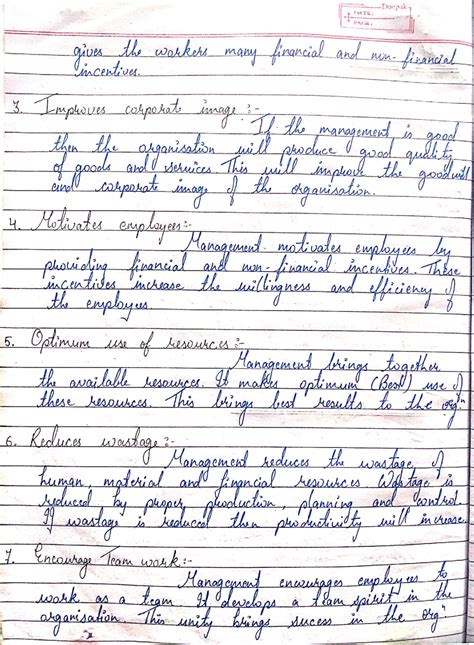 Deepak
DATE:
PAGE:
gives the workers many financial and non-financial
incentives.
3. Improves corporate image :-
If the management is good
then the organisation will produce good quality
of goods and services. This will improve the goodwill
and corporate image of the organisation.
4. Motivates employees:-
Management motivates employees by
providing financial and non-financial incentives. These
incentives increase the willingness and efficiency of
the employees.
5. Optimum use of resources :-
Management brings together
the available resources. It makes optimum (Best) use of
these resources. This brings best results to the orgⁿ
6. Reduces wastage :-
Management reduces the wastage of
human, material and financial resources Wastage is
reduced by proper production, planning and control.
If wastage is reduced then productivity will increase
7. Encourage Team work :-
Management encourages employees to
work as a team. It develops a team spirit in the
organisation. This unity brings sucess in the orgⁿ